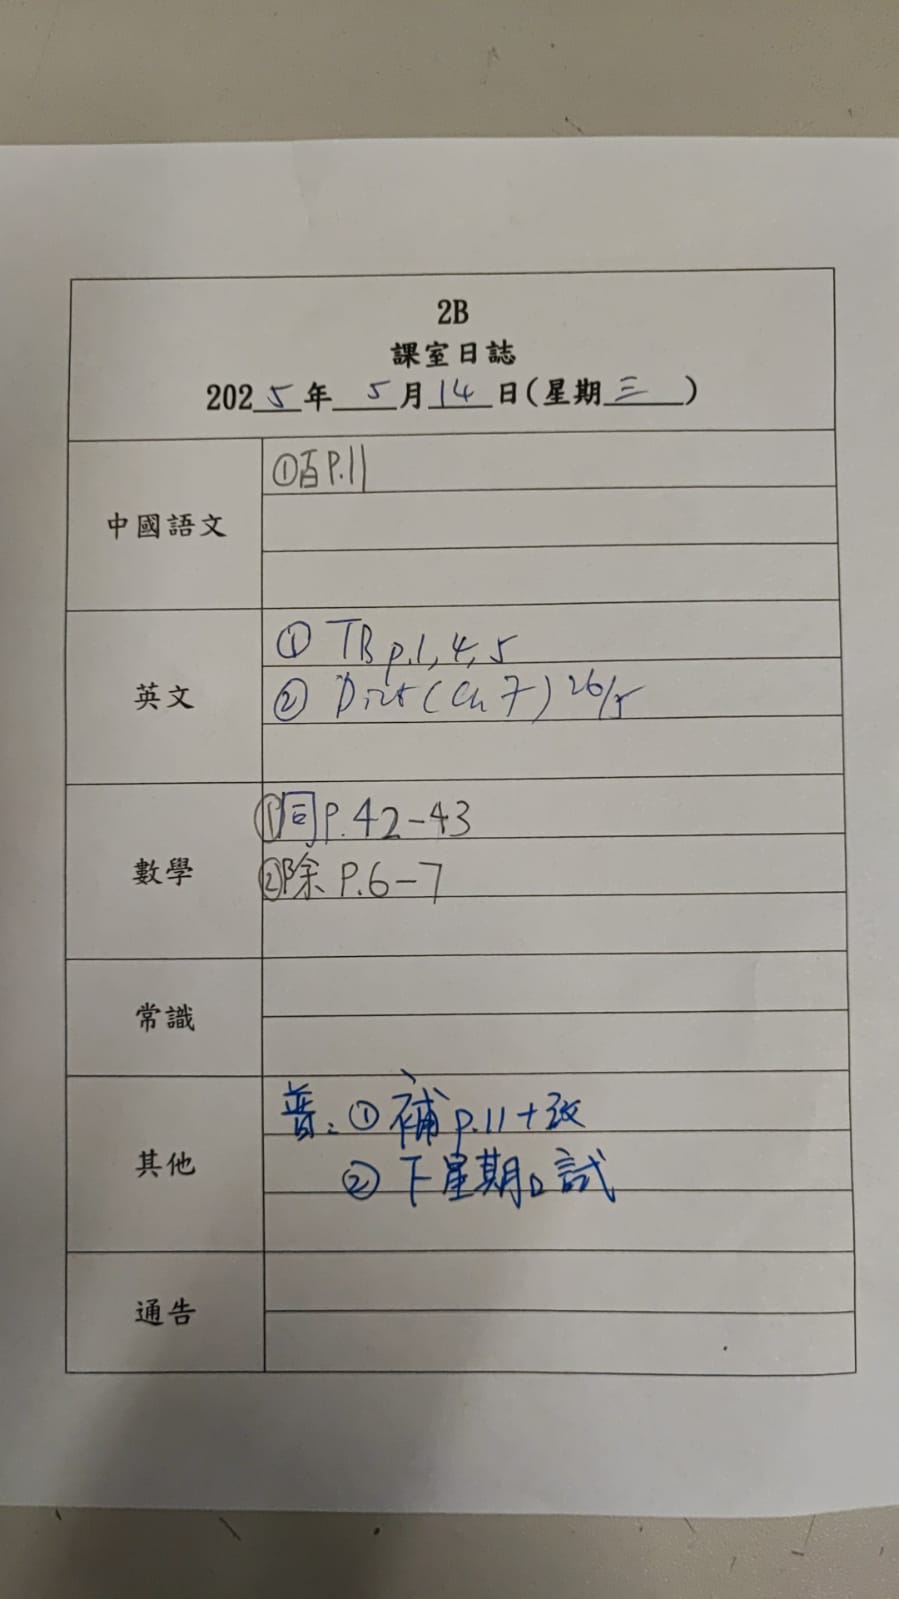 2B
課室日誌
2025年5月14日(星期三)
中國語文
①百P.11
英文
① TB p.1, 4, 5
② Dict (Ch 7) 26/5
數學
①同P.42-43
②除 P.6-7
常識
其他
普：① 補 p.11+改
② 下星期口試
通告